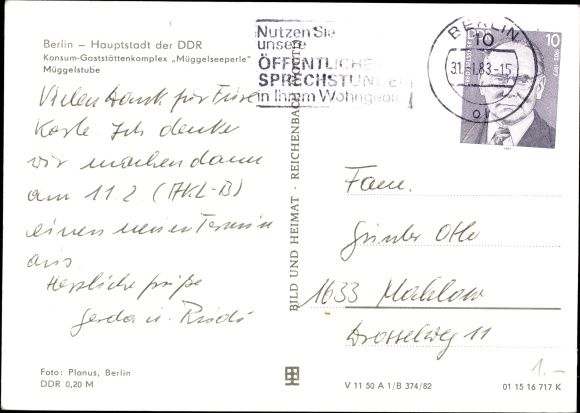 Berlin – Hauptstadt der DDR
Konsum-Gaststättenkomplex „Müggelseeperle"
Müggelstube
Nutzen Sie
unsere
ÖFFENTLICHEN
SPRECHSTUNDEN
in Ihrem Wohngebiet
BERLIN
10
31. 1.83-15
10
Vielen Dank für Eure
Karte Ich denke
wir machen dann
am 11.2. (AKL-B)
einen neuen Termin
aus
Herzliche Grüße
Gerda u. Rudi
BILD UND HEIMAT · REICHENBACH
Fam.
Günter Otto
1633 Mahlow
Drosselweg 11
1.–
Foto: Planus, Berlin
DDR 0,20 M
V 11 50 A 1/B 374/82
01 15 16 717 K